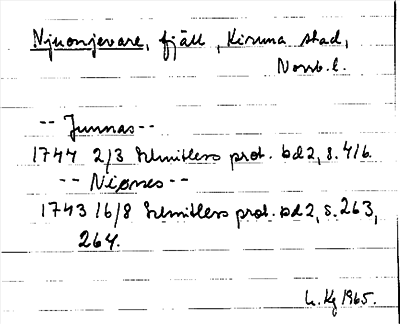 Njuonjevare, fjäll, Kiruna stad,
Norrb. l.
-- Junnas --
1744 2/3 Schnitlers prot. bd 2, s. 416.
-- Niønes --
1743 16/8 Schnitlers prot. bd 2, s. 263,
264.
L. Kg 1965.